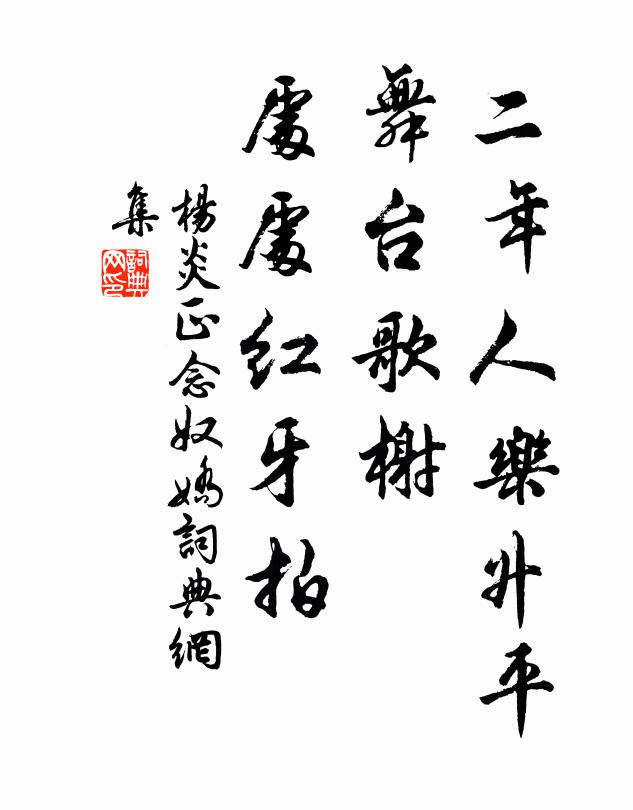 二年人樂升平
舞台歌榭
處處紅牙拍
楊炎正念奴嬌詞典網
集
詞典
网印